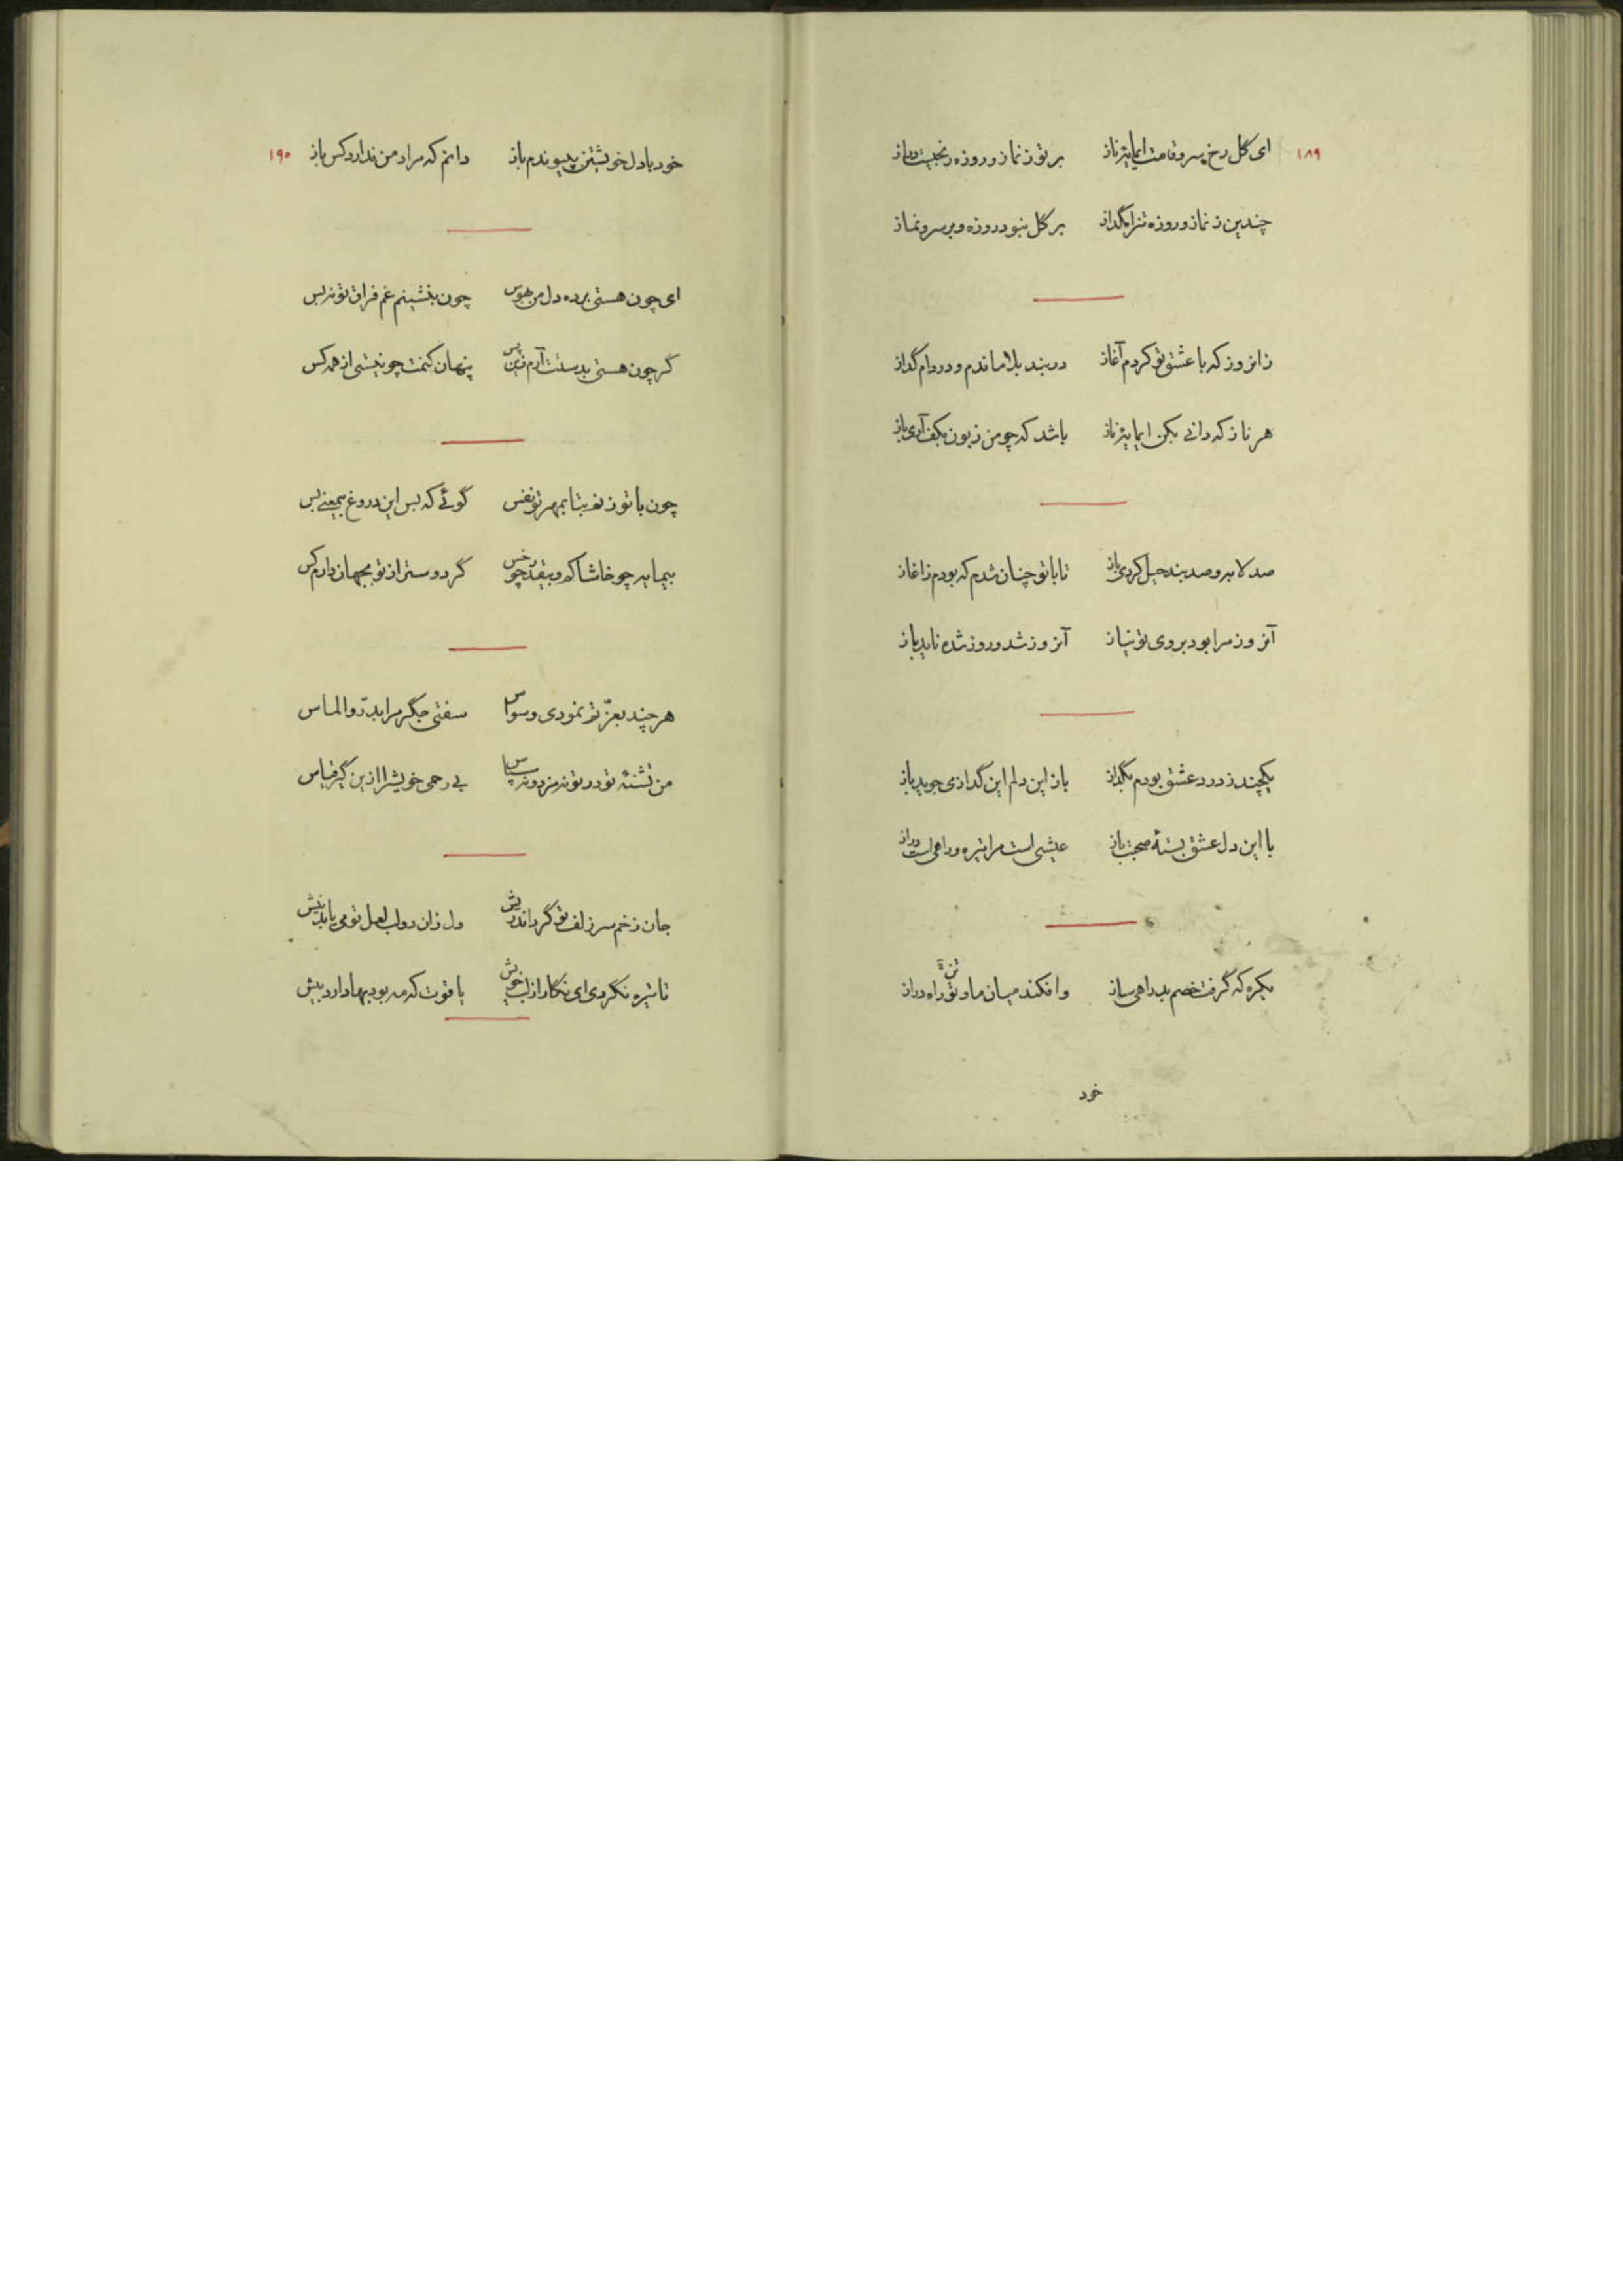 ۱۸۹
ای گل رخ سروقامت ای مایه ناز بر تو ز نماز و روزه رنجیست دراز
چندین ز نماز و روزه تنرا مگداز بر گل نبود روزه و بر سرو نماز
زانروز که با عشق تو کردم آغاز در بند بلا ماندم و در دام گداز
هر ناز که دانی بکن ای مایه ناز باشد که چو من زبون بکف آری باز
صد لابه و صد بند حیل کردی باز تا با تو چنان شدم که بودم ز اغاز
آنروز مرا بود بروی تو نیاز آنروز شد و روز شده ناید باز
یکچند ز درد عشق بودم بگداز باز این دلم این گدازی جوید باز
با این دل عشق بستهٔ صحبت باز عیشی است مرا تیره و راهی است دراز
یکره که گرفت خصم بد راهی ساز وافکند میان ما و تو راه دراز
خود
۱۹۰
خود با دل خویشتن بپیوندم باز دانم که مراد من ندارد کس باز
ای چون هستی برده دل من بهوس چون بنشینم غم فراق تو نه بس
گر چون هستی بدستت آرم زین پس پنهان کنمت چو نیستی از همه کس
چون با تو زنم بتا بمهر تو نفس گوئی که بس این دروغ بیمعنی بس
بیمایه چو خاشاک و بیقدر چو خس گر دوستر از تو بجهان دارم کس
هرچند بعز تو نمودی وسواس سفتی جگر مرا بدرّ و الماس
من تشنهٔ تو در تو نه مزد و نه سپاس بی رحمی خویش را ازین گیر قیاس
جان زخم سر زلف تو گرداند ریش دل زان دو لب لعل تو می یابد نیش
تا تیره نگردی ای نگار از لب خویش یاقوت که مه بود بها دارد بیش